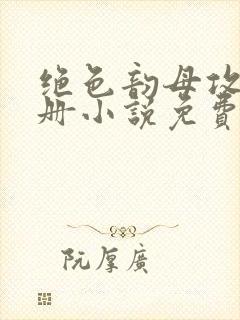 绝色韵母攻
册小说免費
阮厚廣